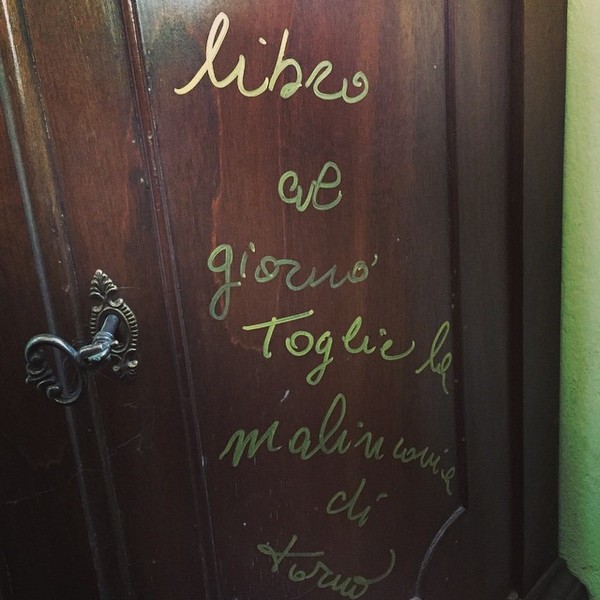 libro
al
giorno
Toglie la
malinconia
di
torno